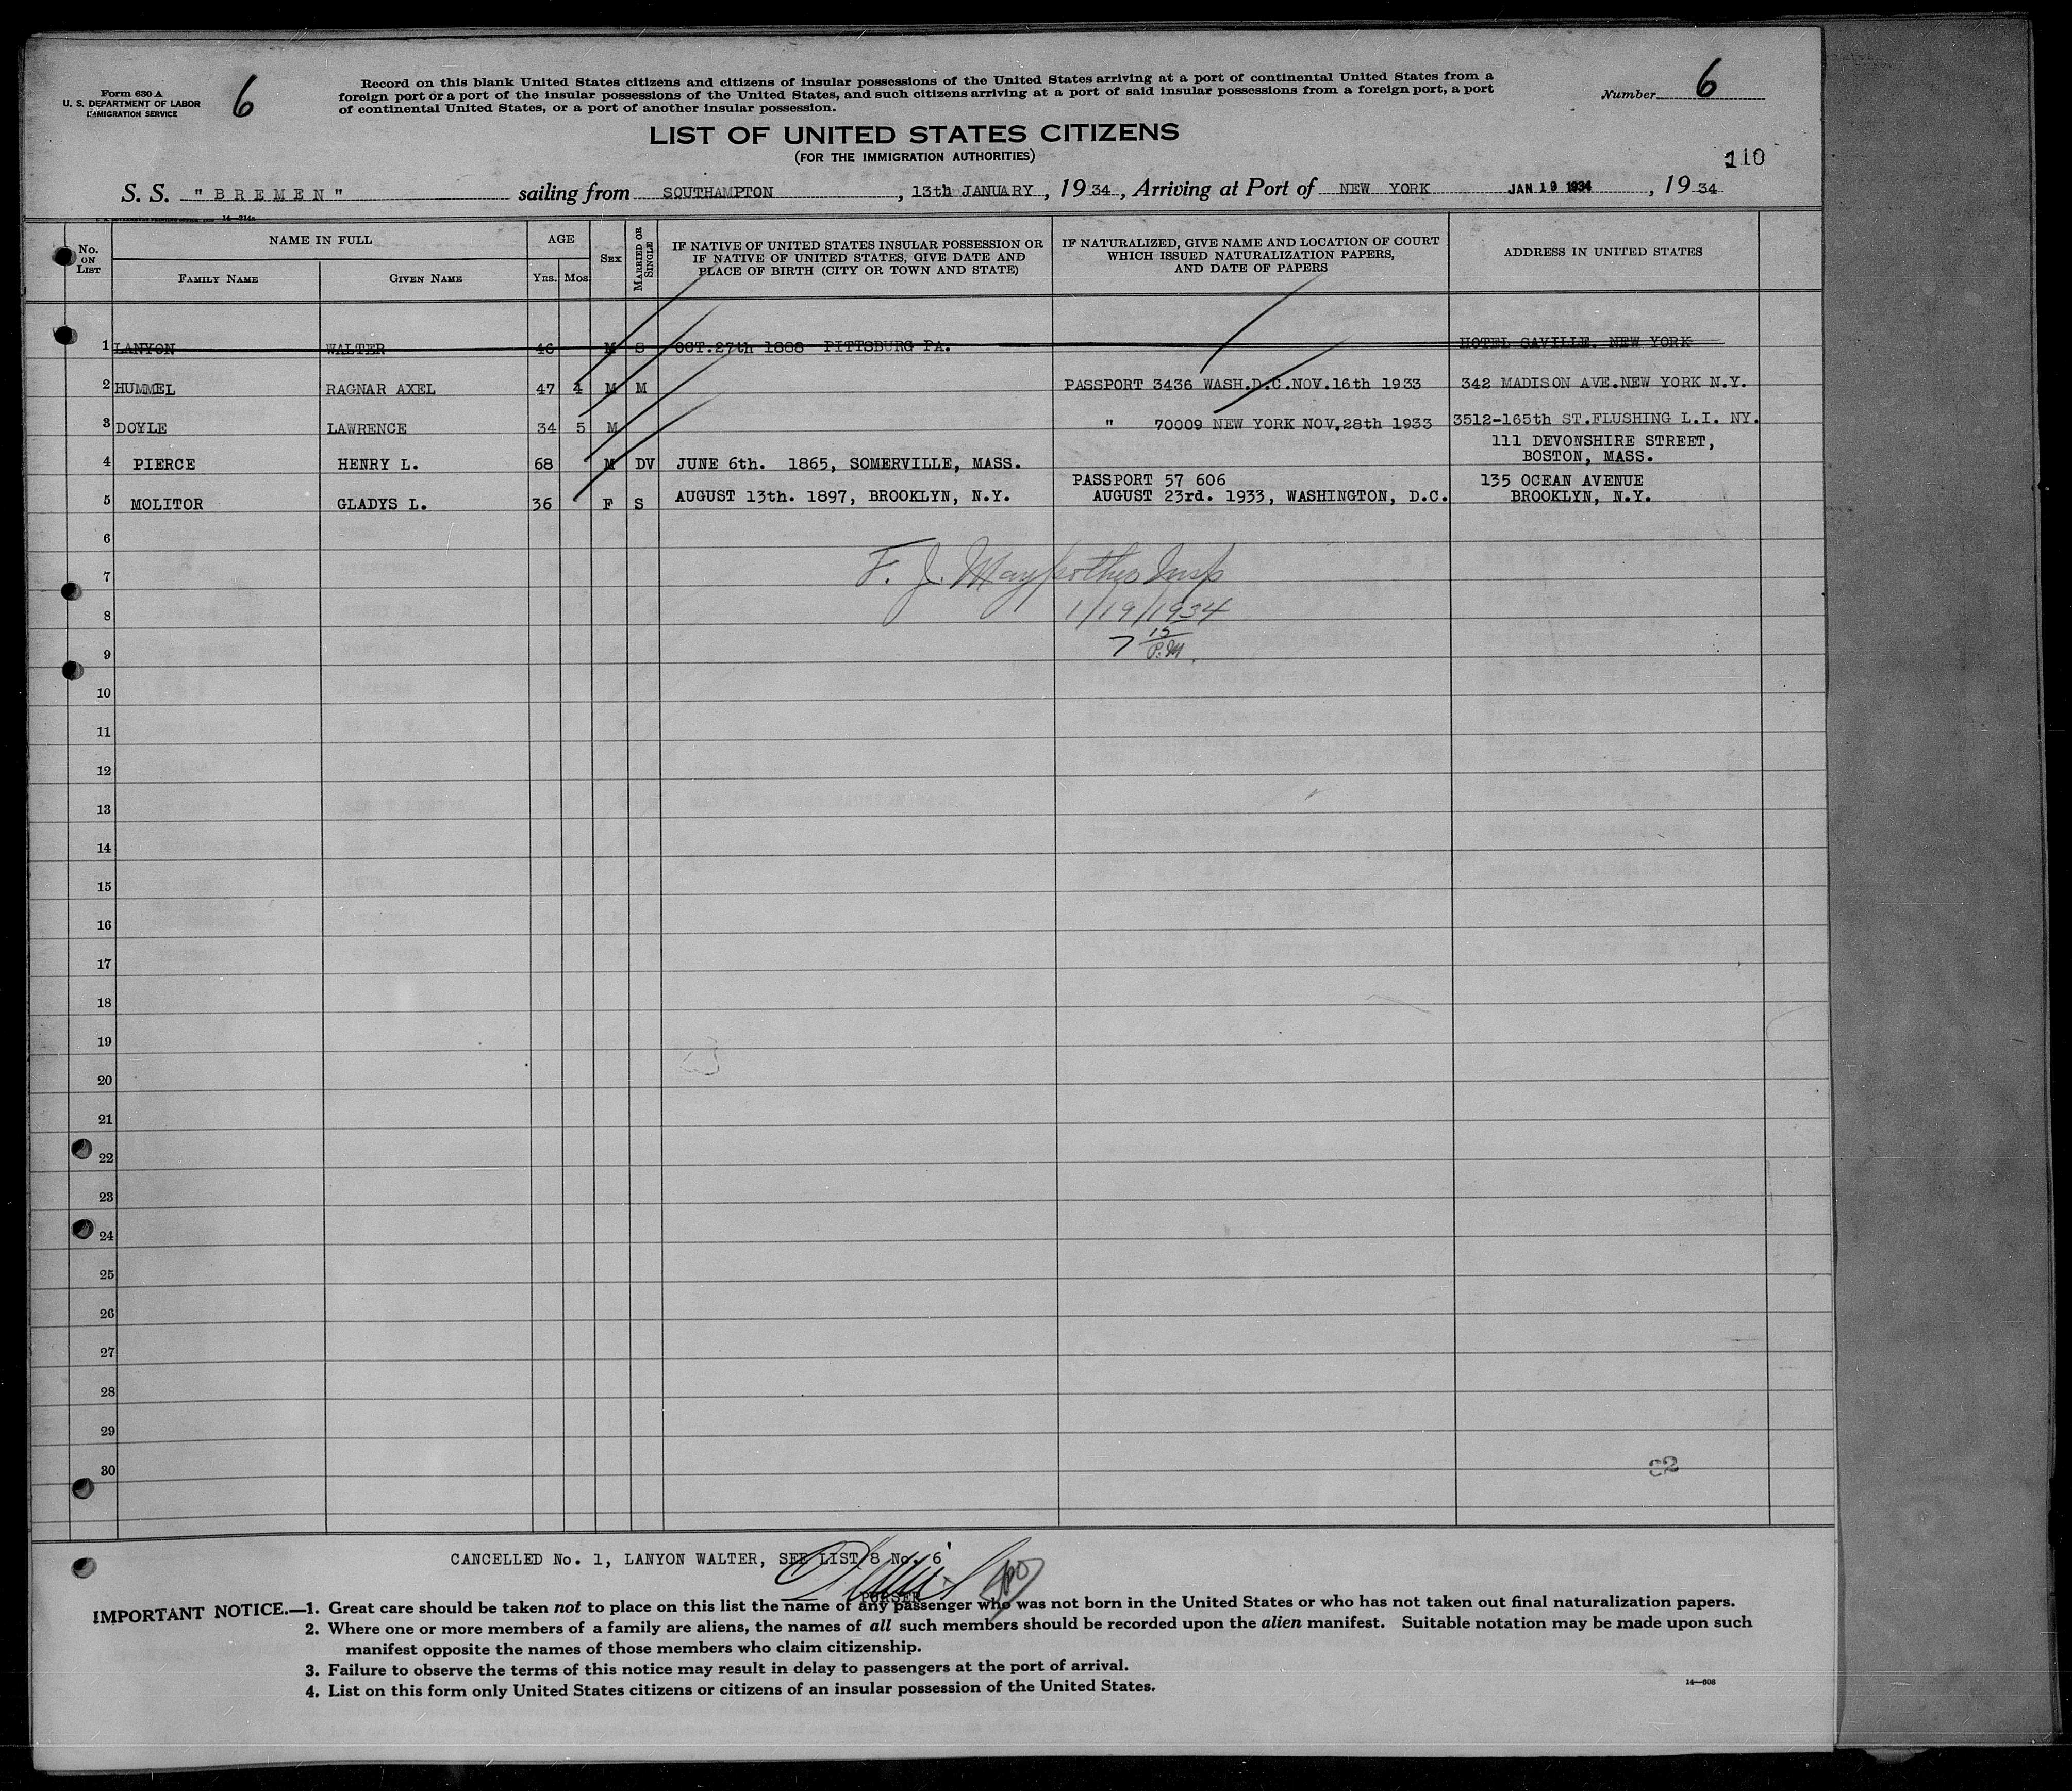 Form 630 A
U. S. DEPARTMENT OF LABOR
IMMIGRATION SERVICE
6
Record on this blank United States citizens and citizens of insular possessions of the United States arriving at a port of continental United States from a
foreign port or a port of the insular possessions of the United States, and such citizens arriving at a port of said insular possessions from a foreign port, a port
of continental United States, or a port of another insular possession.
Number 6
LIST OF UNITED STATES CITIZENS
(FOR THE IMMIGRATION AUTHORITIES)
110
S. S. "BREMEN" sailing from SOUTHAMPTON, 13th JANUARY, 1934, Arriving at Port of NEW YORK JAN 19 1934, 1934
14—214a
No. ON LIST
NAME IN FULL
FAMILY NAME
GIVEN NAME
AGE
YRS. MOS
SEX
MARRIED OR SINGLE
IF NATIVE OF UNITED STATES INSULAR POSSESSION OR
IF NATIVE OF UNITED STATES, GIVE DATE AND
PLACE OF BIRTH (CITY OR TOWN AND STATE)
IF NATURALIZED, GIVE NAME AND LOCATION OF COURT
WHICH ISSUED NATURALIZATION PAPERS,
AND DATE OF PAPERS
ADDRESS IN UNITED STATES
1 LANYON WALTER 46 M S OCT.27th 1888 PITTSBURG PA. HOTEL SAVILLE. NEW YORK
2 HUMMEL RAGNAR AXEL 47 4 M M PASSPORT 3436 WASH.D.C.NOV.16th 1933 342 MADISON AVE.NEW YORK N.Y.
3 DOYLE LAWRENCE 34 5 M " 70009 NEW YORK NOV.28th 1933 3512-165th ST.FLUSHING L.I. NY.
4 PIERCE HENRY L. 68 M DV JUNE 6th. 1865, SOMERVILLE, MASS. 111 DEVONSHIRE STREET,
BOSTON, MASS.
5 MOLITOR GLADYS L. 36 F S AUGUST 13th. 1897, BROOKLYN, N.Y. PASSPORT 57 606 135 OCEAN AVENUE
AUGUST 23rd. 1933, WASHINGTON, D.C. BROOKLYN, N.Y.
6
7
F. J. Insp
8
1/19/1934
9
7 15 P.M.
10
11
12
13
14
15
16
17
18
19
20
21
22
23
24
25
26
27
28
29
30
32
CANCELLED No. 1, LANYON WALTER, SEE LIST 8 No. 6
PURSER
IMPORTANT NOTICE.—1. Great care should be taken not to place on this list the name of any passenger who was not born in the United States or who has not taken out final naturalization papers.
2. Where one or more members of a family are aliens, the names of all such members should be recorded upon the alien manifest. Suitable notation may be made upon such
manifest opposite the names of those members who claim citizenship.
3. Failure to observe the terms of this notice may result in delay to passengers at the port of arrival.
4. List on this form only United States citizens or citizens of an insular possession of the United States.
14—608